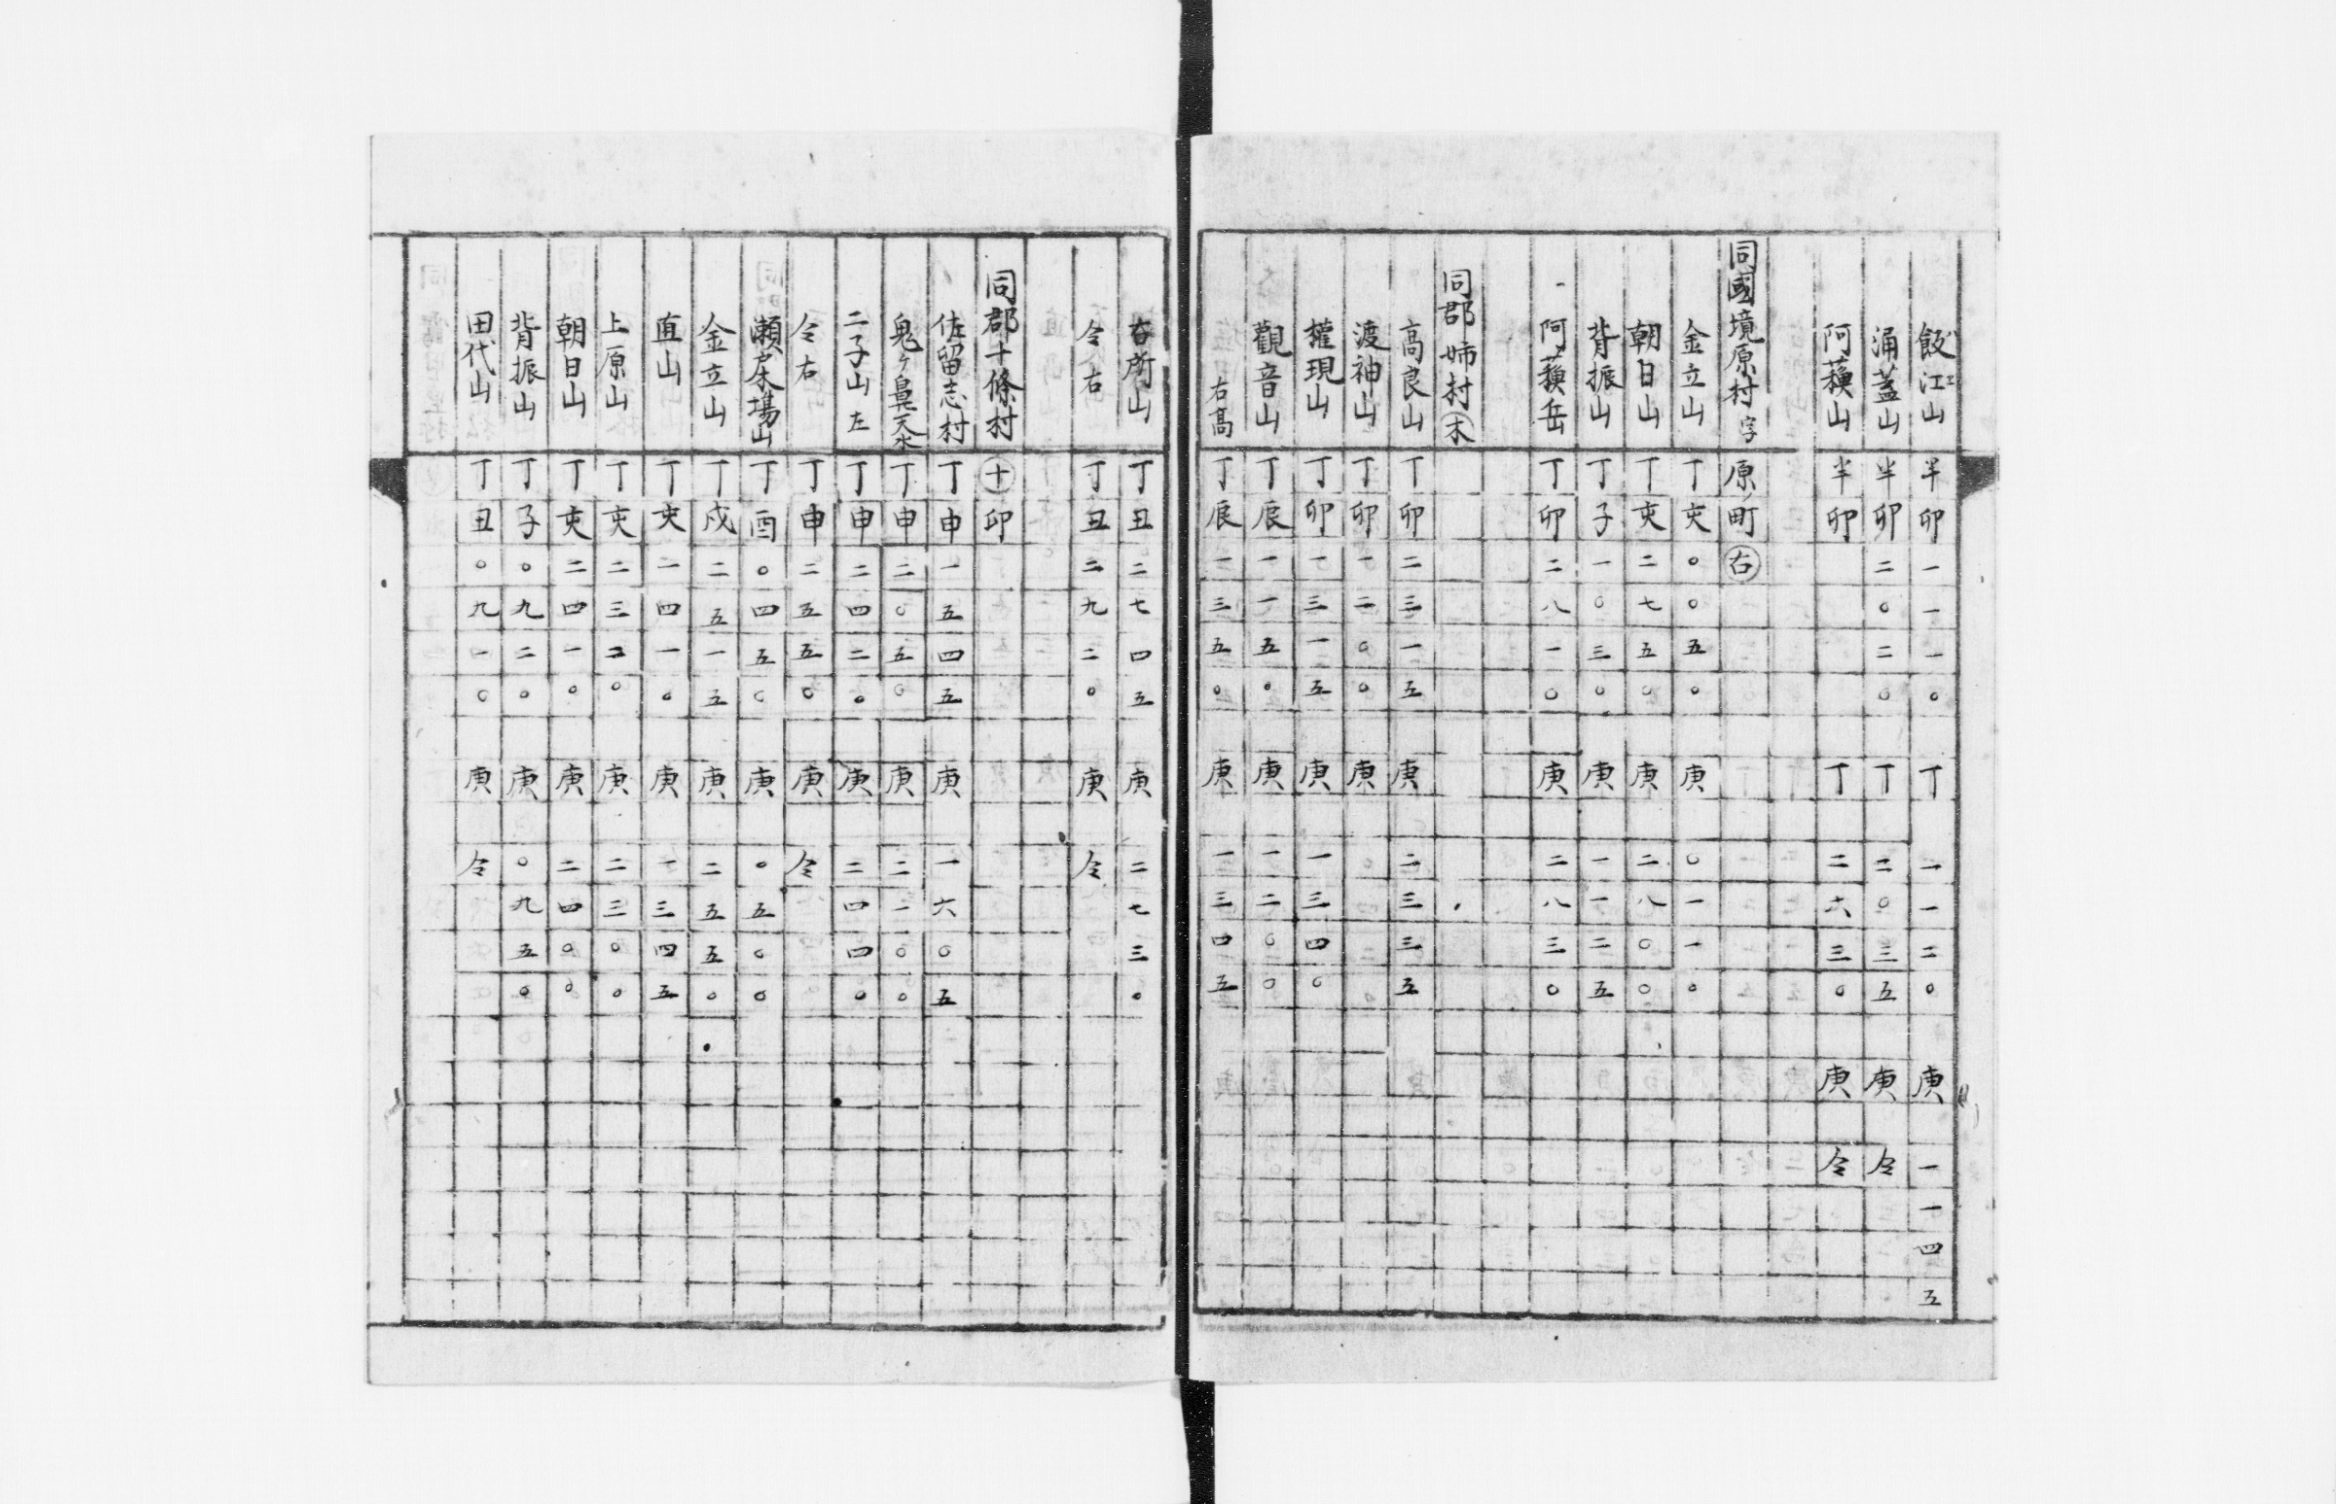 飯江山 半卯 一一一〇 丁 一一二〇 庚 一一四五
涌蓋山 半卯 二〇二〇 丁 二〇三五 庚 仝
阿蘓山 半卯 丁 二六三〇 庚 仝
同國境原村字原ノ町㊨
金立山 丁亥 〇〇五〇 庚 〇一一〇
朝日山 丁亥 二七五〇 庚 二八〇〇
背振山 丁子 一〇三〇 庚 一一二五
阿蘓岳 丁卯 二八一〇 庚 二八三〇
同郡姉村㊍
高良山 丁卯 二三一五 庚 二三三五
渡神山 丁卯 一二〇〇 庚
權現山 丁卯 一三一五 庚 一三四〇
觀音山 丁辰 一一五〇 庚 一二〇〇
右高 丁辰 一三五〇 庚 一三四五
右所山 丁丑 二七四五 庚 二七三〇
仝右 丁丑 二九二〇 庚 仝
同郡十條村㊉印
佐留志村 丁申 一五四五 庚 一六〇五
鬼ヶ鼻 丁申 二〇五〇 庚 二一〇〇
二子山左 丁申 二四二〇 庚 二四四〇
仝右 丁申 二五五〇 庚 仝
瀬戸木場山 丁酉 〇四五〇 庚 〇五〇〇
金立山 丁戌 二五一五 庚 二五五〇
直山 丁亥 一四一〇 庚 一三四五
上原山 丁亥 二三二〇 庚 二三〇〇
朝日山 丁亥 二四一〇 庚 二四〇〇
背振山 丁子 〇九二〇 庚 〇九五〇
田代山 丁丑 〇九一〇 庚 仝